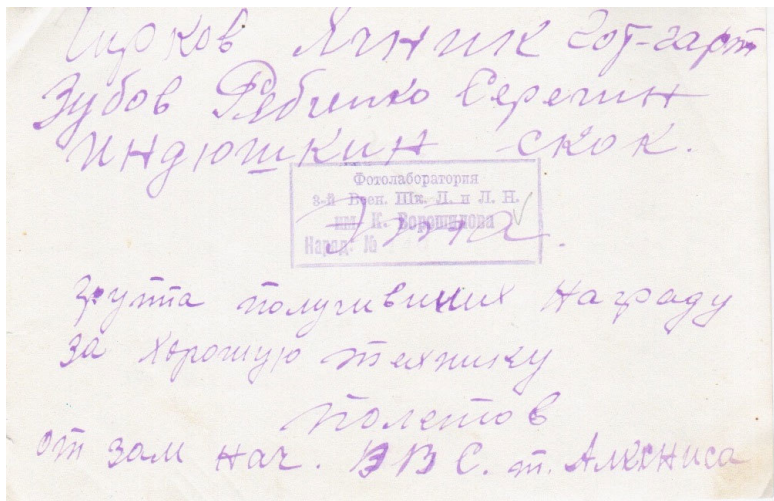 Чирков Ячник Гот-гарт
Зубов Рябченко Серегин
Индюшкин скок.
Фотолаборатория
3-й Воен. Шк. Л. и Л. Н.
им. К. Ворошилова
Наряд: №
Группа получивших награду
за хорошую технику
полетов
от зам нач. ВВС. т. Алксниса